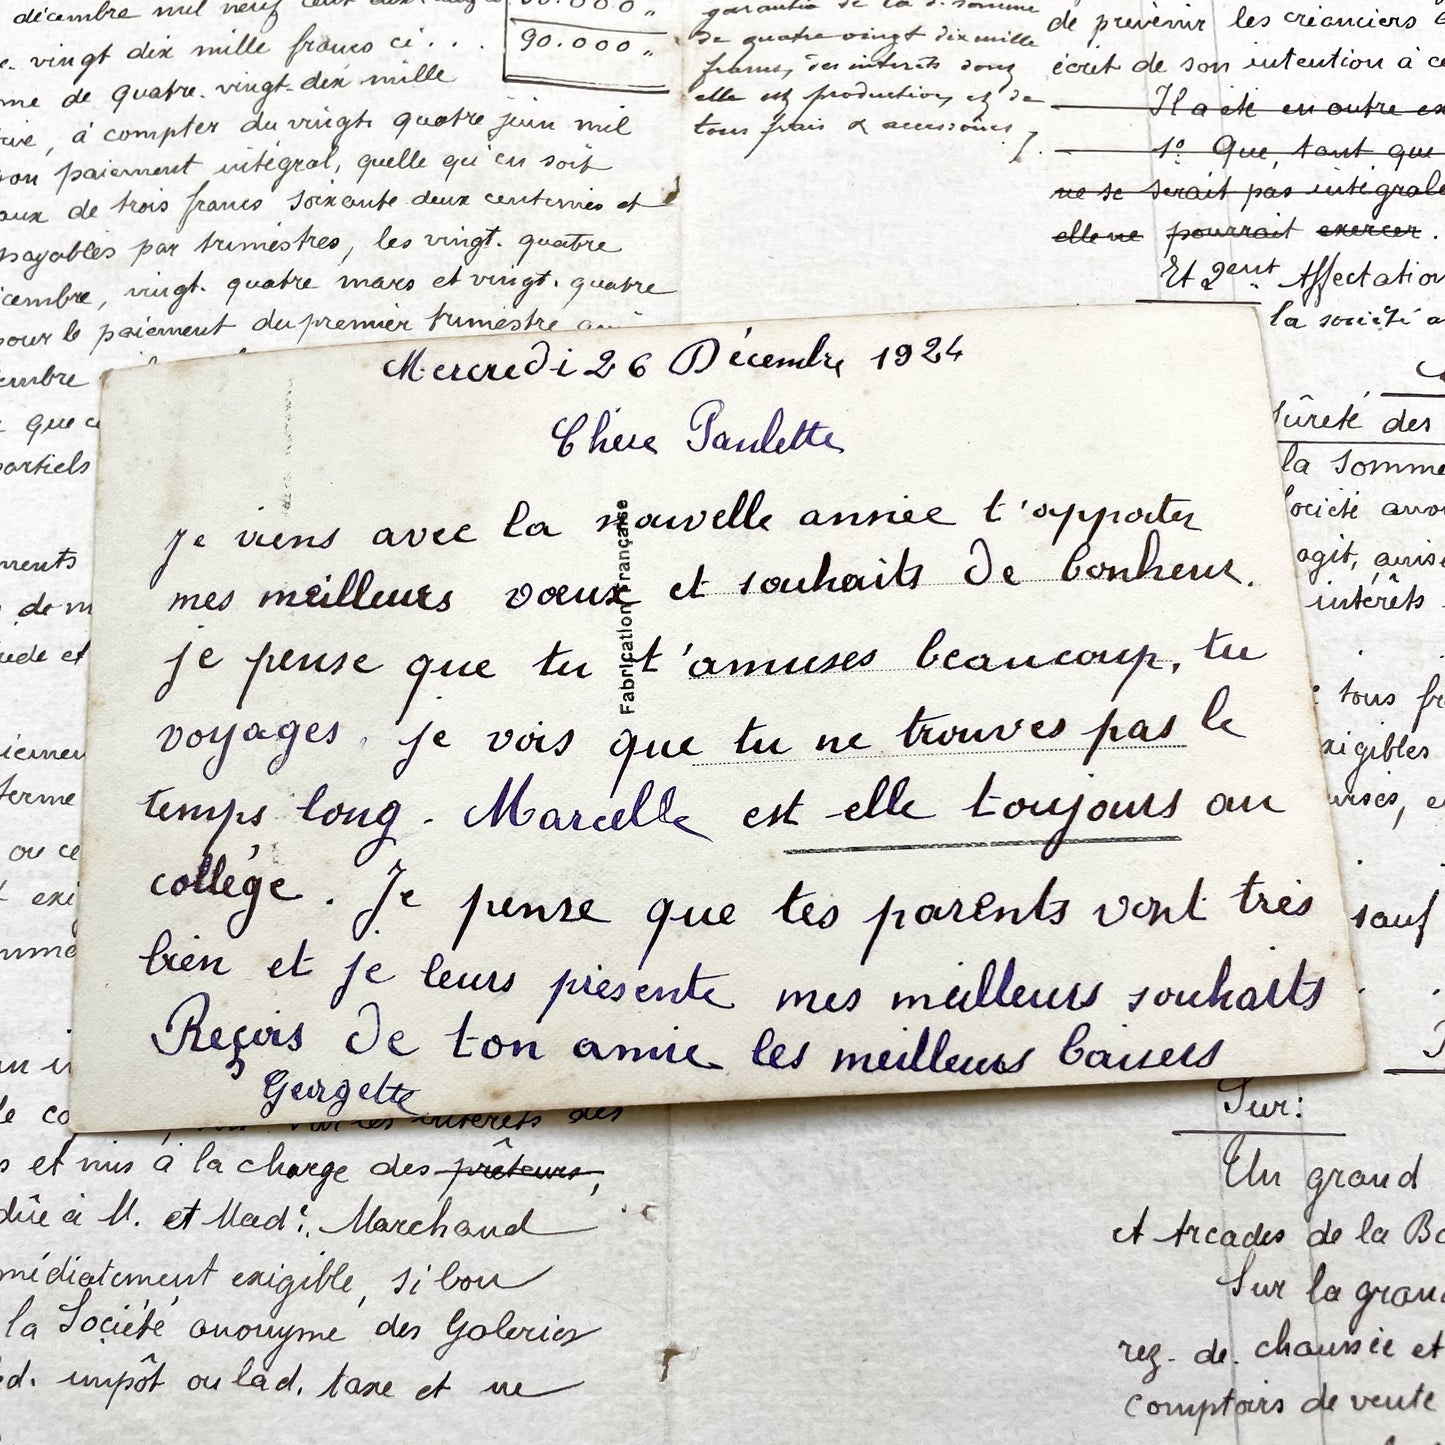 décembre mil neuf cent
vingt dix mille francs ci . . .
me de quatre. vingt. dix mille
, à compter du vingt. quatre juin mil
son paiement intégral, quelle qu'en soit
aux de trois francs soixante deux centimes et
payables par trimestres, les vingt. quatre
cembre, vingt. quatre mars et vingt. quatre
pour le paiement du premier trimestre
embre
que c
partiels
ments
de m
ide et
ou ce
exi
90.000 "
garantie de la d. somme
de quatre vingt dix mille
francs, des intérêts dont
elle est production, et de
tous frais & accessoires ;.
de prévenir les créanciers
écrit de son intention à ce
Il a été en outre ex
1º Que, tant que
ne se serait pas intégrale
elle ne pourrait exercer .
Et 2ent Affectation
la société a
Sûreté des
la Somme
Société anon
agit, ainsi
intérêts
tous fr
xigibles
sauf
Mercredi 26 Décembre 1924
Chère Paulette
je viens avec la nouvelle année t'apporter
mes meilleurs vœux et souhaits de bonheur.
je pense que tu t'amuses beaucoup, tu
voyages. je vois que tu ne trouves pas le
temps long. Marcelle est-elle toujours au
collège. Je pense que tes parents vont très
bien et je leurs présente mes meilleurs souhaits
Reçois de ton amie les meilleurs baisers
Georgette
Fabrication Française
les intérêts des
s et mis à la charge des prêteurs,
dûe à M. et Made. Marchand
médiatement exigible, si bon
la Société anonyme des Galeries
ed. impôt ou lad. taxe et ne
Sur:
Un grand
et Arcades de la Bo
Sur la grand
rez. de. chaussée et
comptoirs de vente